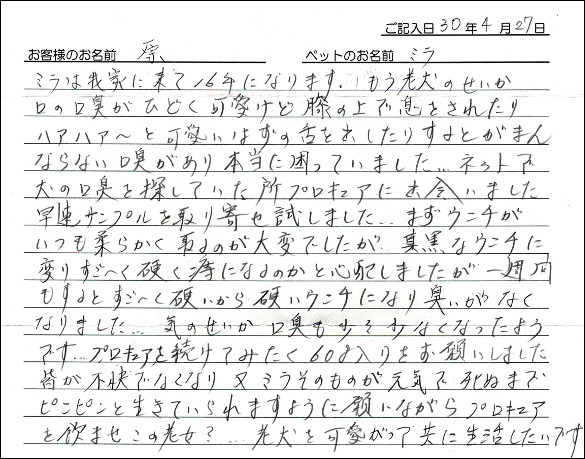 ご記入日 30年 4月 27日
お客様のお名前 原 ペットのお名前 ミラ
ミラは我家に来て16年になります. もう老犬のせいか
口の口臭がひどく可愛けど膝の上で息をされたり
ハアハア〜と可愛いはずの舌を出したりするとがまん
ならない口臭があり本当に困っていました… ネットで
犬の口臭を探していた所プロキュアに出会いました
早速サンプルを取り寄せ試しました… まずウンチが
いつも柔らかく取るのが大変でしたが 真黒なウンチに
変りすご〜く硬く痔になるのかと心配しましたが 一週間
もするとすご〜く硬いから硬いウンチになり臭いがなく
なりました… 気のせいか口臭も少々少なくなったよう
です…プロキュアを続けてみたく60g入りをお願いしました
皆が不快でなくなり又ミラそのものが元気で死ぬまで
ピンピンと生きていられますように願いながらプロキュア
を飲ませこの老女?… 老犬を可愛がって共に生活したいです